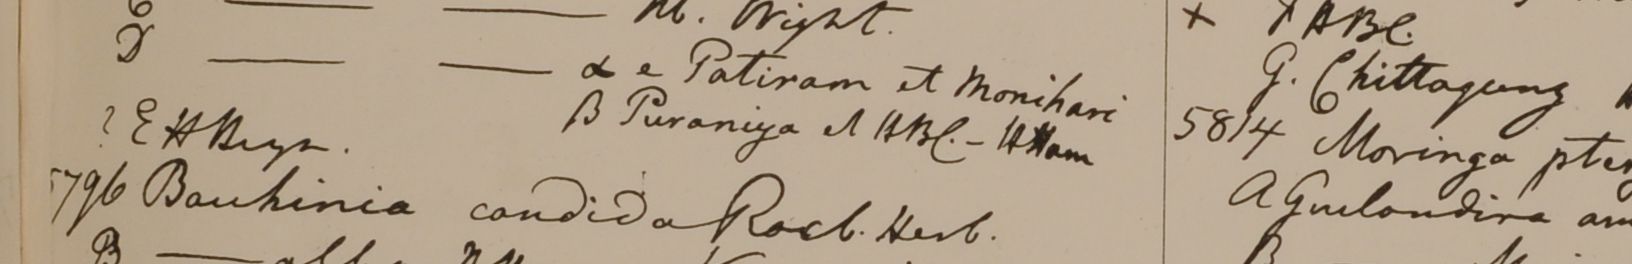 C — — M. Wight.
D — — α e Patiram et Monihari
β Puraniya et HBC. - H Ham
? E H Heyn.
5796 Bauhinia candida Roxb. Herb.
B — alba
+ † HBC.
G. Chittagung
5814 Moringa pter
A Guilandina
B